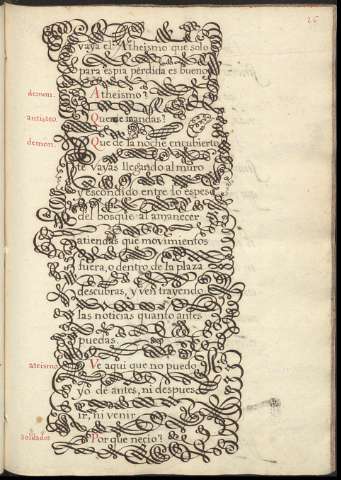 26
vaya el Atheismo que solo
para espia perdida es bueno
demon. Atheismo?
Que me mandas?
demon. Que de la noche encubierto
te vayas llegando al muro
y escondido entre lo espeso
del bosque al amanecer
atiendas que movimientos
fuera, o dentro de la plaza
descubras, y ven trayendo
las noticias quanto antes
puedas.
ateismo Ve aqui que no puedo
yo de antes, ni despues
ir, ni venir
soldados Por que necio?